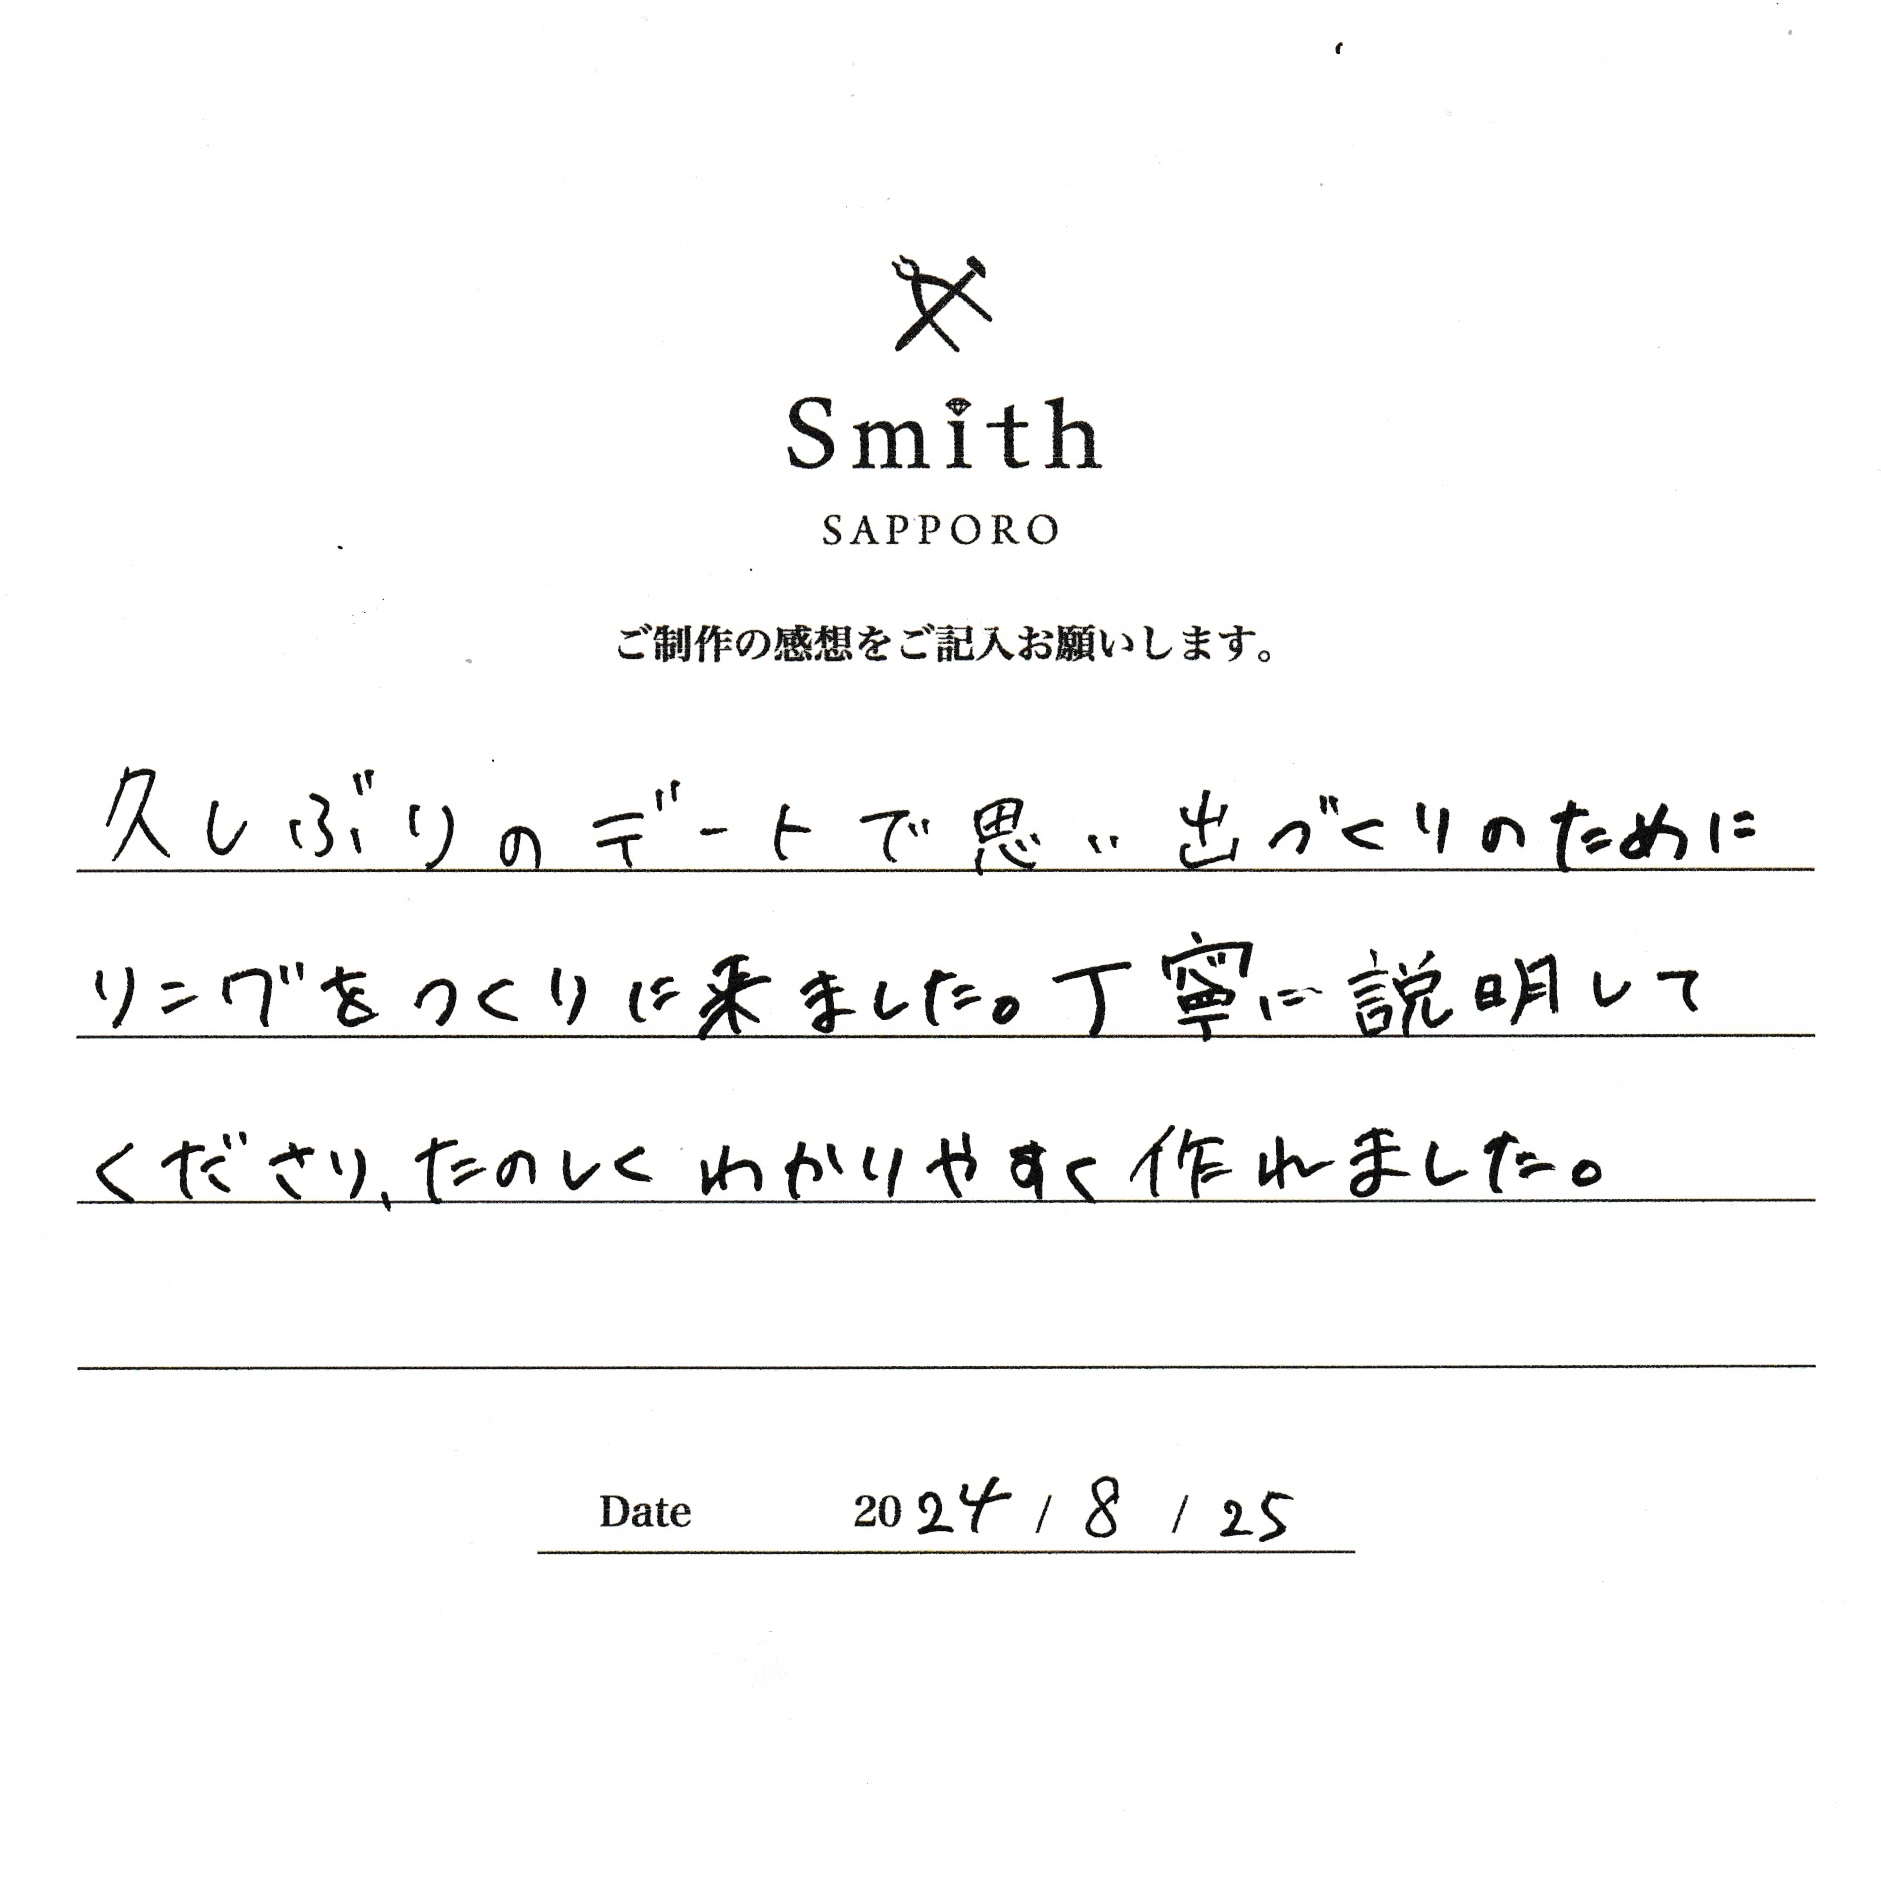 Smith
SAPPORO
ご制作の感想をご記入お願いします。
久しぶりのデートで思い出づくりのために
リングをつくりに来ました。丁寧に説明して
くださり、たのしくわかりやすく作れました。
Date 2024 / 8 / 25